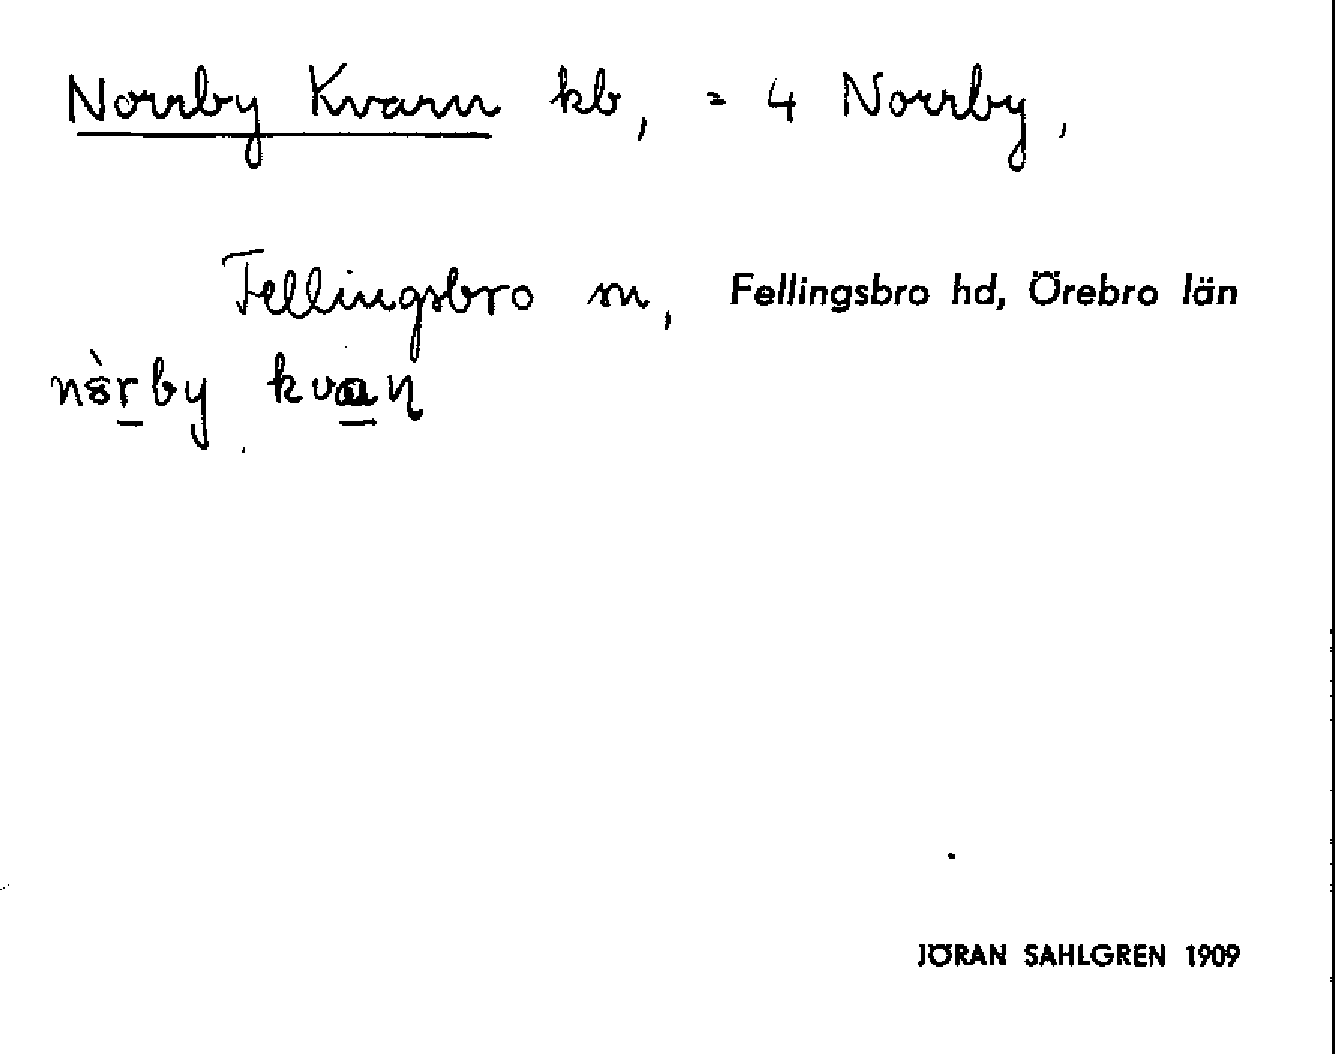 Norrby Kvarn kb, = 4 Norrby,
Fellingsbro sn, Fellingsbro hd, Örebro län
nòrby kvaɳ
JÖRAN SAHLGREN 1909